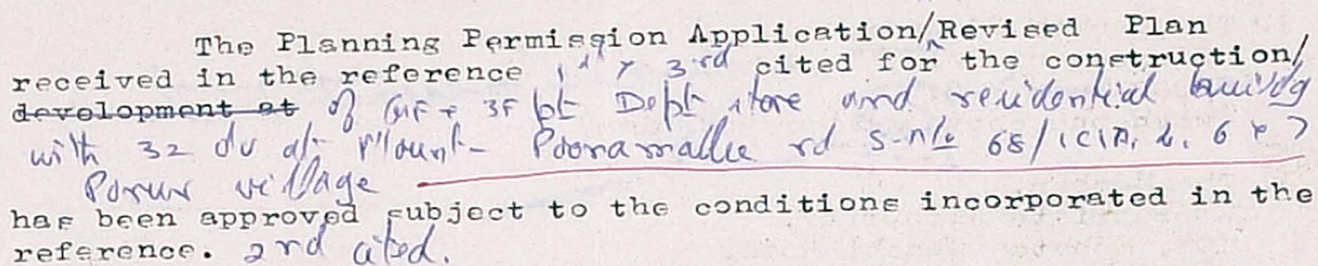 The Planning Permission Application/Revised Plan
received in the reference 1st & 3rd cited for the construction/
development at of GF + 3F pt Dept store and residential building
with 32 du at Mount- Poonamallee rd S.no 68/1C1A,
Porur village
has been approved subject to the conditions incorporated in the
reference. 2nd cited.